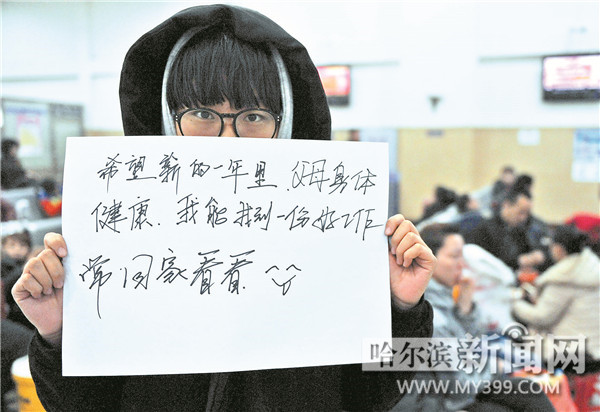 希望新的一年里、父母身体
健康、我能找到一份好工作
常回家看看
哈尔滨新闻网
WWW.MY399.COM